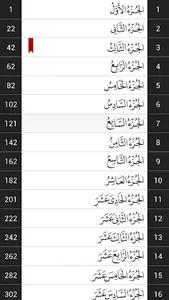 1 الجزء الأول 1
2 الجزء الثاني 22
3 الجزء الثالث 42
4 الجزء الرابع 62
5 الجزء الخامس 82
6 الجزء السادس 102
7 الجزء السابع 121
8 الجزء الثامن 142
9 الجزء التاسع 162
10 الجزء العاشر 182
11 الجزء الحادي عشر 201
12 الجزء الثاني عشر 222
13 الجزء الثالث عشر 242
14 الجزء الرابع عشر 262
15 الجزء الخامس عشر 282
16 الجزء السادس عشر 302